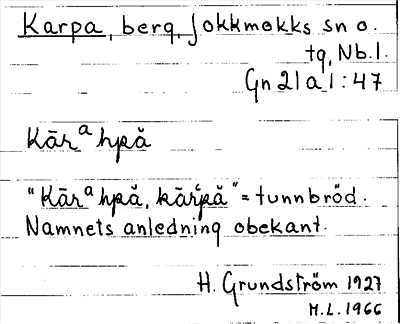 Karpa, berg, Jokkmokks sn o.
tg, Nb.l.
Gn 21 a 1 : 47
Kārᵃhpă
"Kārᵃhpă, kārᵃpă" = tunnbröd.
Namnets anledning obekant.
H. Grundström 1927
M.L. 1966